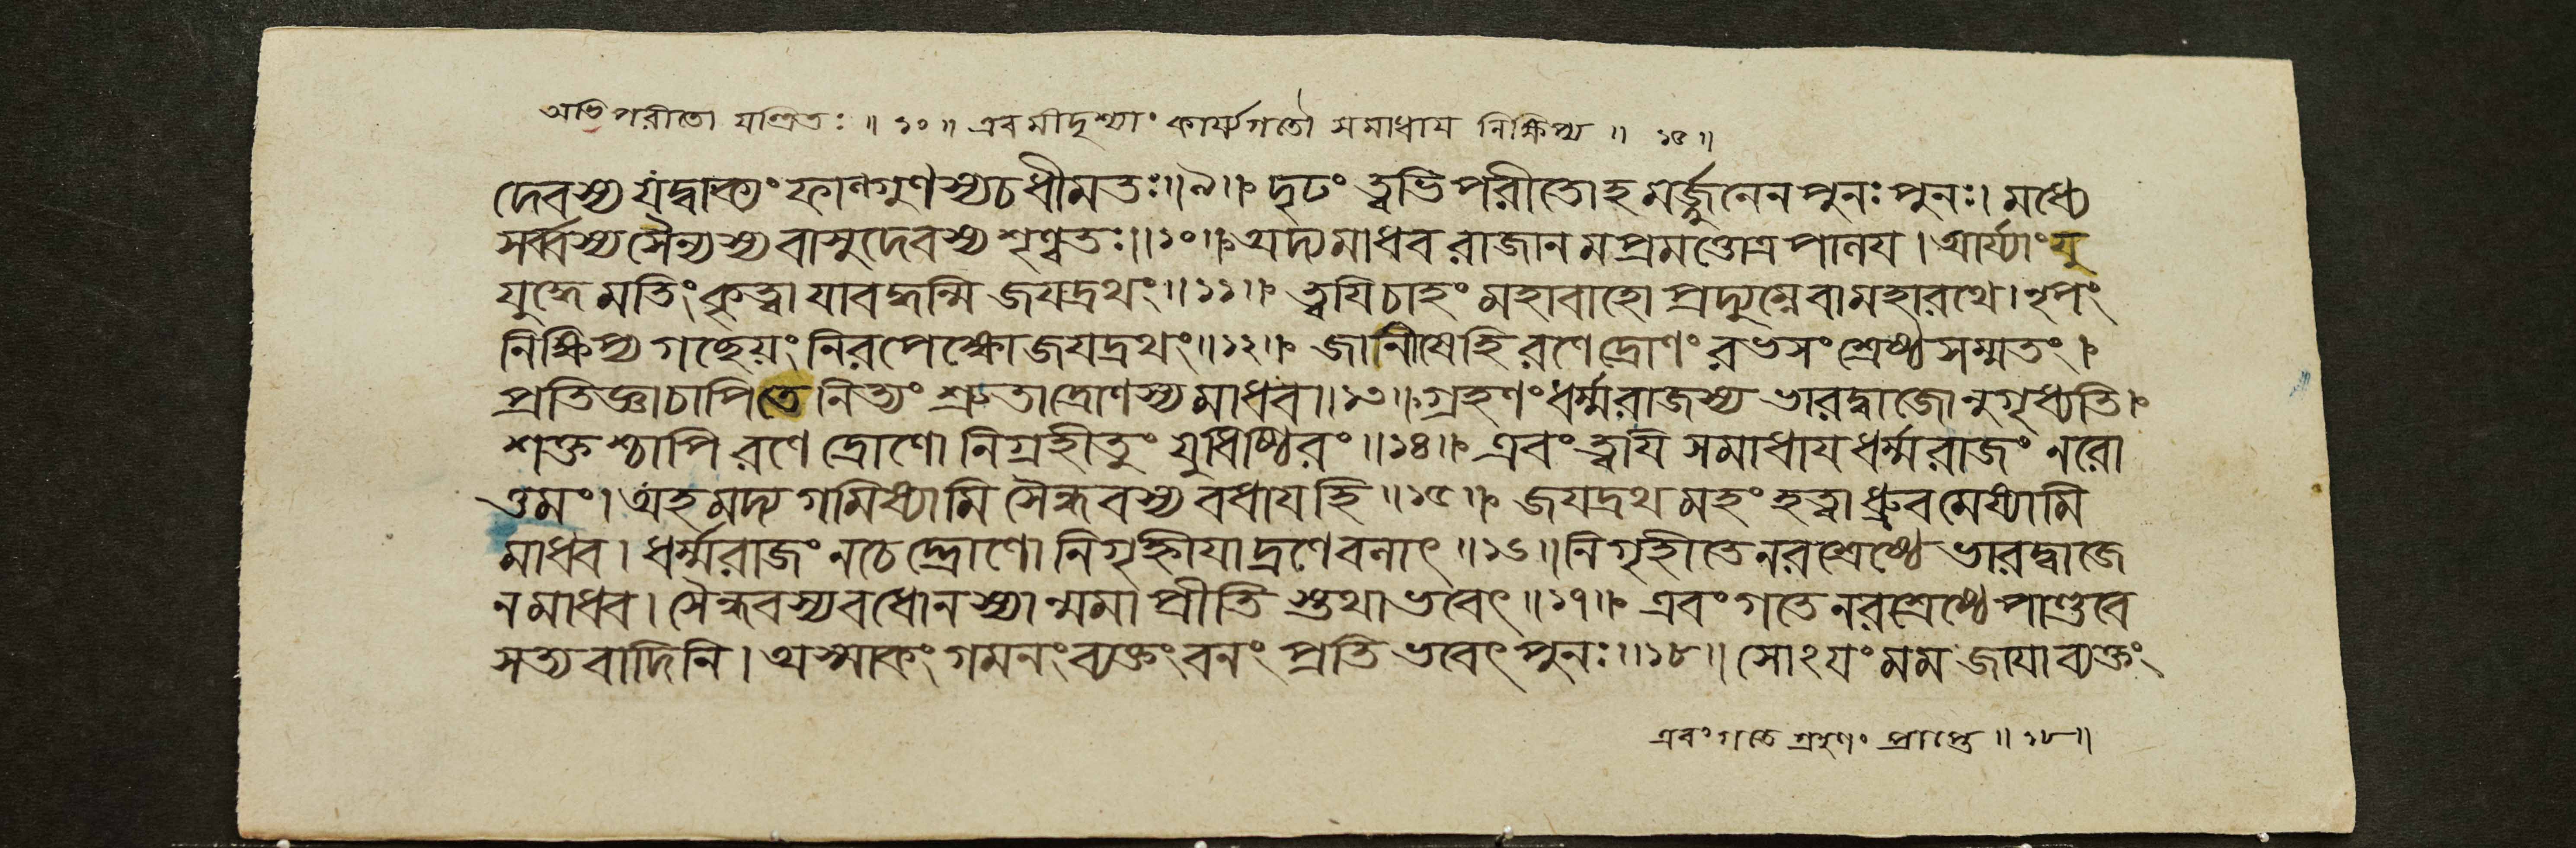 অভিপরীতো যন্ত্রিতঃ ॥ ১০ ॥ এবমীদৃশ্যাং কার্য্যগতৌ সমাধায নিক্ষিপ্য ॥ ১৫ ॥
দেবস্য যদ্বাক্যং ফাল্গুণস্য চ ধীমতঃ॥ ৯॥ দৃঢং ত্বভিপরীতোহমর্জ্জুনেন পুনঃ পুনঃ। মধ্যে
সর্ব্বস্য সৈন্যস্য বাসুদেবস্য শৃণ্বতঃ॥ ১০॥ অদ্য মাধব রাজানমপ্রমত্তোত্র পালয। আর্য্যাং যু
যুদ্ধে মতিং কৃত্বা যাবদ্ধন্মি জযদ্রথং॥ ১১॥ ত্বযি চাহং মহাবাহো প্রদ্যুম্নে বা মহারথে। নৃপং
নিক্ষিপ্য গচ্ছেয়ং নিরপেক্ষো জযদ্রথং॥ ১২॥ জানীষে হি রণে দ্রোণং রভসং শ্রেষ্ঠসম্মতং।
প্রতিজ্ঞা চাপি তে নিত্যং শ্রুতা দ্রোণস্য মাধব॥ ১৩॥ গ্রহণং ধর্ম্মরাজস্য ভারদ্বাজোনুগৃধ্যতি।
শক্তশ্চাপি রণে দ্রোণো নিগ্রহীতুং যুধিষ্ঠিরং॥ ১৪॥ এবং ত্বযি সমাধায ধর্ম্মরাজং নরো
ত্তমং। অহমদ্য গমিষ্যামি সৈন্ধবস্য বধায হি॥ ১৫॥ জযদ্রথমহং হত্বা ধ্রুবমেষ্যামি
মাধব। ধর্ম্মরাজং ন চেদ্দ্রোণো নিগৃহ্ণীযাদ্রণে বলাৎ॥ ১৬॥ নিগৃহীতে নরশ্রেষ্ঠে ভারদ্বাজে
ন মাধব। সৈন্ধবস্য বধো ন স্যান্মমাপ্রীতিস্তথা ভবেৎ॥ ১৭॥ এবং গতে নরশ্রেষ্ঠে পাণ্ডবে
সত্যবাদিনি। অস্মাকং গমনং ব্যক্তং বনং প্রতি ভবেৎ পুনঃ॥ ১৮॥ সোঽযং মম জাযা ব্যক্তং
এবং গতে গ্রহণং প্রাপ্তে ॥ ১৮ ॥